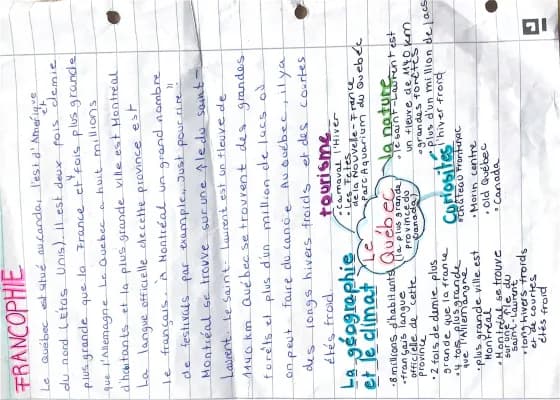 FRANCOPHIE
Le québec est situé au canada, l'est d'Amérique
et
du nord (États Unis). Il est deux fois demie
plus grande que la France et fois plus grande
que l'Allemagne Le quebec a huit millions
d'habitants et la plus grande ville est Montréal
La langue officielle de cette province est
le français. À Montréal un grand nombre
de festivals par example,, Just pour rire"
Montréal se trouve sur une île du saint-
Laurent. Le saint-Laurent est un fleuve de
1140 km Québec se trouvent des grandes
forêts et plus d'un million de lacs où
on peut faire du canoë Au québec, il y a
des longs hivers froids et des courtes
étés froid
tourisme
• Carnaval d'Hiver
• Les Fêtes
de la Nouvelle-France
• Parc Aquarium du Québec
la nature
• le saint-Laurent est
un fleuve de 1140 km
• grandes forêts
• plus d'un million de lacs
• l'hiver froid
Le
Québec
(la plus grande
province du
Canada)
Curiosités
• Château Frontenac
• Morin centre
• Old Québec
• Canada
La géographie
et le climat
• 8 millions d'habitants
• français langue
officielle de cette
province
• 2 fois de demie plus
grande que la france
• 4 fois plus grande
que l'Allemangne
• plus grande ville est
Montréal
• Montréal se trouve
sur une île du
saint-Laurent
• long hivers froids
et de courtes
étés froid